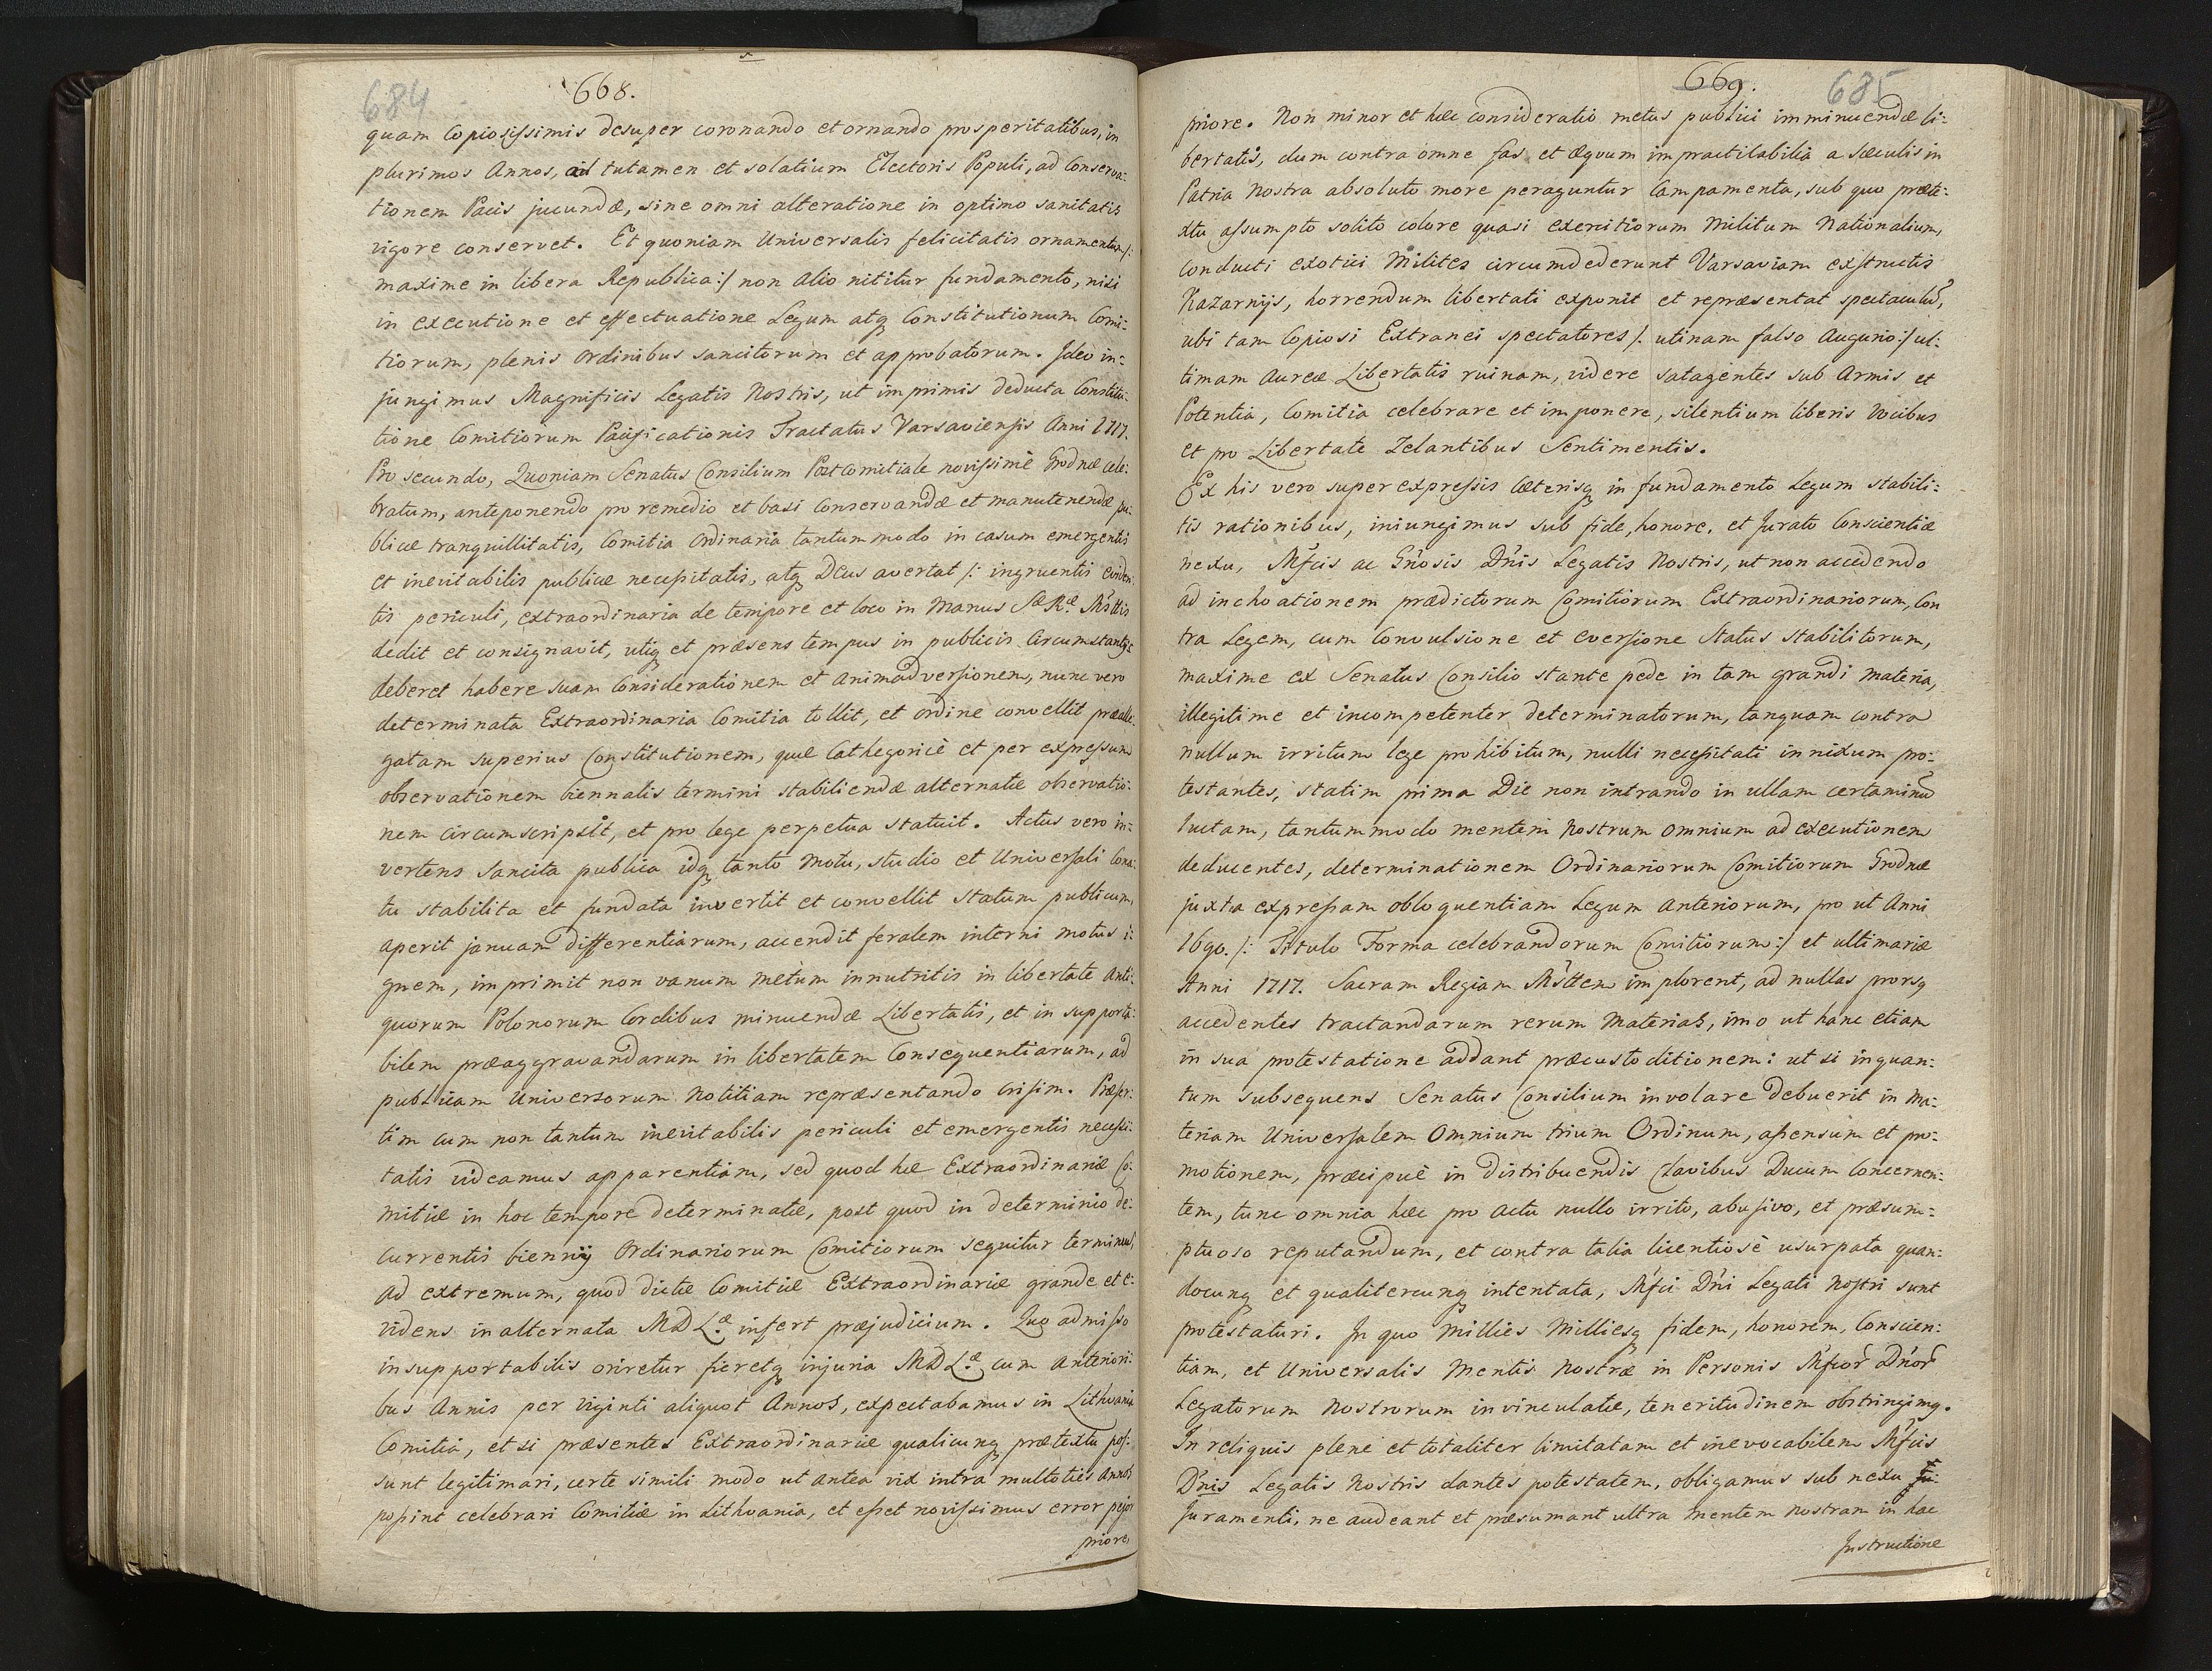 684
668.
quam Copiosissimis desuper coronando et ornando prosperitatibus, in
plurimos Annos, ad tutamen et solatium Electoris Populi, ad Conserva:
tionem Pacis jucundæ, sine omni alteratione in optimo sanitatis
vigore conservet. Et quoniam Universalis felicitatis ornamentum /:
maxime in libera Republica :/ non alio nititur fundamento, nisi
in executione et effectuatione Legum atq Constitutionum Comi:
tiorum, plenis Ordinibus sancitorum et approbatorum. Ideo in:
jungimus Magnificis Legatis Nostris, ut imprimis deducta Constitu:
tione Comitiorum Pacificationis Tractatus Varsaviensis Anni 1717.
Pro secundo, Quoniam Senatus Consilium Postcomitiale novissimè Grodnæ cele:
bratum, anteponendo pro remedio et basi Conservandæ et manutenendæ pu:
blicæ tranquillitatis, Comitia Ordinaria tantummodo in casum emergentis
et inevitabilis publicæ necessitatis, atq Deus avertat /: ingruentis eviden:
tis periculi, extraordinaria de tempore et loco in Manus Sæ Ræ Msttis
dedit et consignavit, utiq et præsens tempus in publicis Circumstantijs
deberet habere suam Considerationem et animadversionem, nunc vero
determinata Extraordinaria Comitia tollit, et ordine convellit præalle:
gatam superius Constitutionem, quæ Cathegoricè et per expressum
observationem biennalis termini stabiliendæ alternatæ observatio:
nem circumscripsit, et pro lege perpetua statuit. Actus vero in:
vertens sancita publica idq tanto motu, studio et Universali Cona:
tu stabilita et fundata invertit et convellit statum publicum,
aperit januam differentiarum, accendit feralem interni motus i:
gnem, imprimit non vanum metum innutritis in libertate anti:
quorum Polonorum Cordibus minuendæ Libertatis, et in supporta:
bilem præaggravandarum in libertatem Consequentiarum, ad
publicam Universorum notitiam repræsentando crisim. Præser:
tim cum non tantum inevitabilis periculi et emergentis necessi:
tatis videamus apparentiam, sed quod hæ Extraordinariæ Co:
mitiæ in hoc tempore determinatæ, post quod in determinio de:
currentis biennij Ordinariorum Comitiorum sequitur terminus,
ad extremum, quod dictæ Comitiæ Extraordinariæ grande et e:
videns in alternata MD Læ infert præjudicium. Quo admisso
insupportabilis oriretur fieretq injuria MD Læ cum anteriori:
bus Annis per viginti aliquot Annos, expectabamus in Lithvania
Comitia, et si præsentes Extraordinariæ qualicunq prætextu pos:
sunt legitimari, certe simili modo ut antea vix intra multoties annos
possint celebrari Comitiæ in Lithvania, et esset novissimus error pejor
priore
669.
685
priore. Non minor et hæc consideratio metus publici imminuendæ li:
bertatis, dum contra omne fas et æquum impractibabilia a sæculis in
Patria nostra absoluto more peraguntur Campamenta, sub quo præte:
xtu assumpto solito colore quasi exercitiorum Militum Nationalium,
Conducti exotici Milites circumdederunt Varsaviam exstructis
Kazarnijs, horrendum libertati exponit et repræsentat spectaculu,
ubi tam Copiosi Extranei spectatores /: utinam falso Augurio :/ ul:
timam Aureæ Libertatis ruinam, videre satagentes sub Armis et
Potentia, Comitia celebrare et imponere, silentium liberis Vocibus
et pro Libertate Zelantibus Sentimentis.
Ex his vero superexpressis cæterisq in fundamento Legum stabili:
tis rationibus, iniungimus sub fide, honore, et Jurato Conscientiæ
nexu, Mfcis ac Gnosis Dnis Legatis Nostris, ut non accedendo
ad inchoationem prædictorum Comitiorum Extraordinariorum, Con
tra Legem, cum Convulsione et eversione Status stabilitorum,
maxime ex Senatus Consilio stante pede in tam grandi materia,
illegitime et incompetenter determinatorum, tanquam contra
nullum irritum lege prohibitum, nulli necessitati innixum pro:
testantes, statim prima Die non intrando in ullam certaminu
luctam, tantummodo mentem nostrum omnium ad executionem
deducentes, determinationem Ordinariorum Comitiorum Grodnæ
juxta expressam obloquentiam Legum anteriorum, pro ut Anni
1690. /: Titulo Forma celebrandorum Comitiorum :/ et ultimariæ
Anni 1717. Sacram Regiam Msttem implorent, ad nullas prorsq
accedentes tractandarum rerum Materias, imo ut hanc etiam
in sua protestatione addant præcustoditionem: ut si inquan:
tum subsequens Senatus Consilium involare debuerit in ma:
teriam Universalem Omnium trium Ordinum, assensum et pro:
motionem, præcipuè in distribuendis Clavibus Ducum Concernen:
tem, tunc omnia hæc pro actu nullo irrito, abusivo, et præsum:
ptuoso reputandum, et contra talia licentiosè usurpata quan:
docunq et qualitercunq intentata, Mfci Dni Legati nostri sunt
protestaturi. In quo Millies Milliesq fidem, honorem, Conscien:
tiam, et Universalis Mentis Nostræ in Personis Mfcor Dnor
Legatorum Nostrorum invinculatæ, teneritudinem obstringimq.
In reliquis plene et totaliter limitatam et inevocabilem Mfcis
Dnis Legatis Nostris dantes potestatem, obligamus sub nexu
Juramenti, ne audeant et præsumant ultra mentem nostram in hac
Instructione